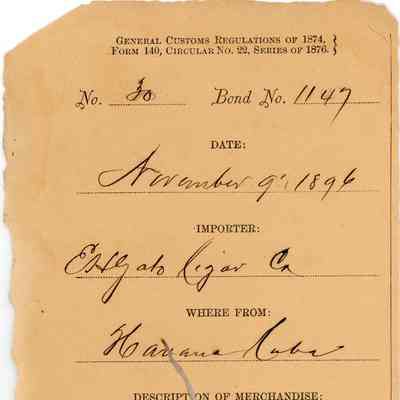 GENERAL CUSTOMS REGULATIONS OF 1874,
FORM 140, CIRCULAR NO. 22, SERIES OF 1876.
No. 30 Bond No. 1147
DATE:
November 9, 1896
IMPORTER:
EH Gato Cigar Co
WHERE FROM:
Havana Cuba
DESCRIPTION OF MERCHANDISE: